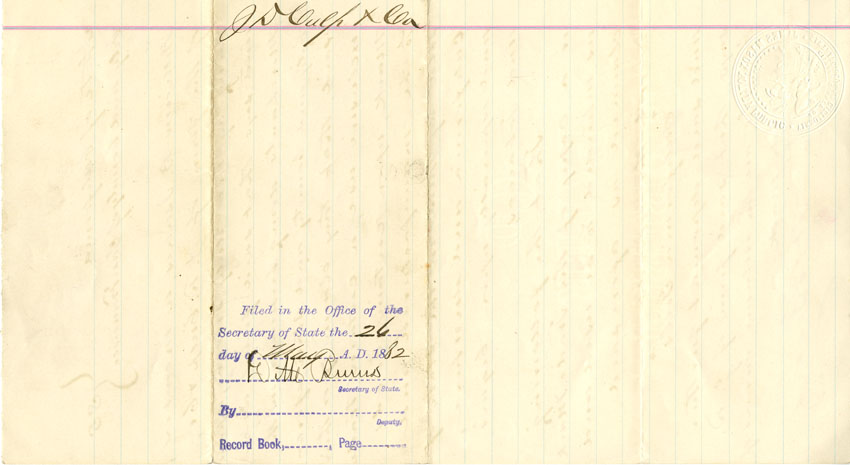 J D Culp & Co
Filed in the Office of the
Secretary of State the 26
day of May A. D. 1882
D M Burns
Secretary of State.
By
Deputy.
Record Book, Page